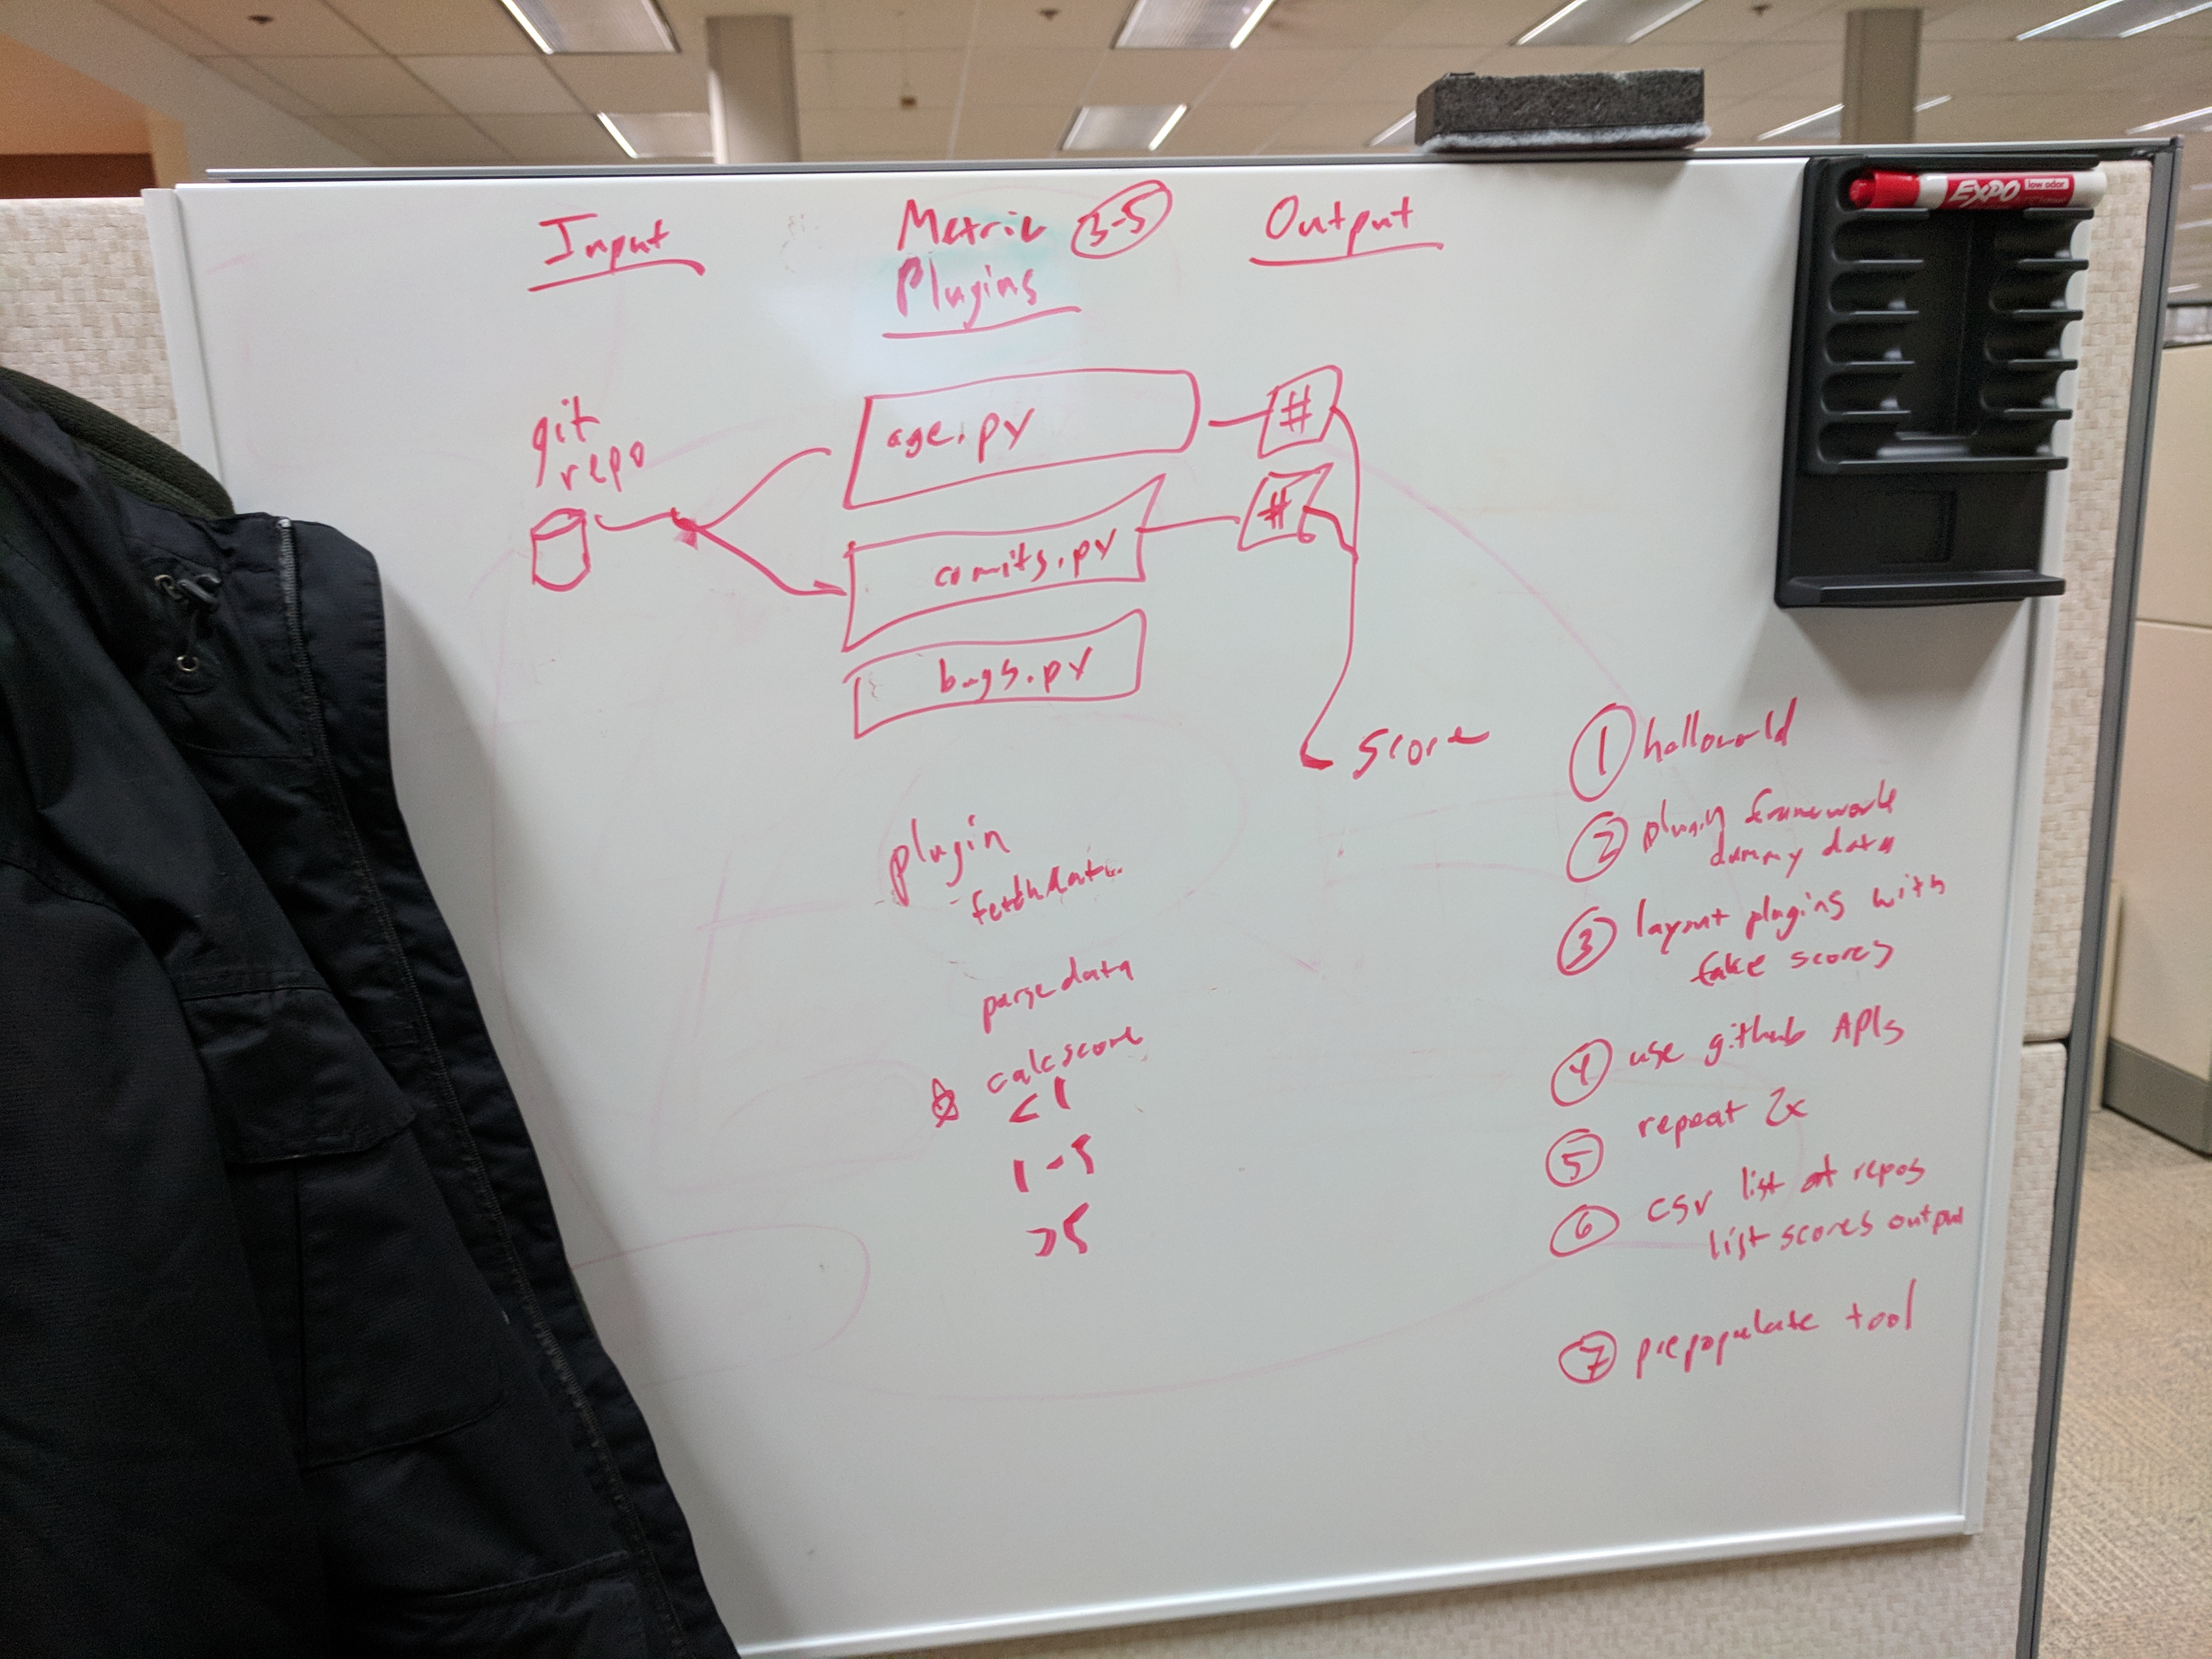 Input
Metric 3-5
Plugins
Output
git
repo
age.py
#
comits.py
#
bugs.py
score
plugin
fetchdata
parsedata
calcscore
<1
1-5
>5
1 helloworld
2 plugin framework
dummy data
3 layout plugins with
fake scores
4 use github APIs
5 repeat 2x
6 csv list of repos
list scores output
7 prepopulate tool
EXPO low odor